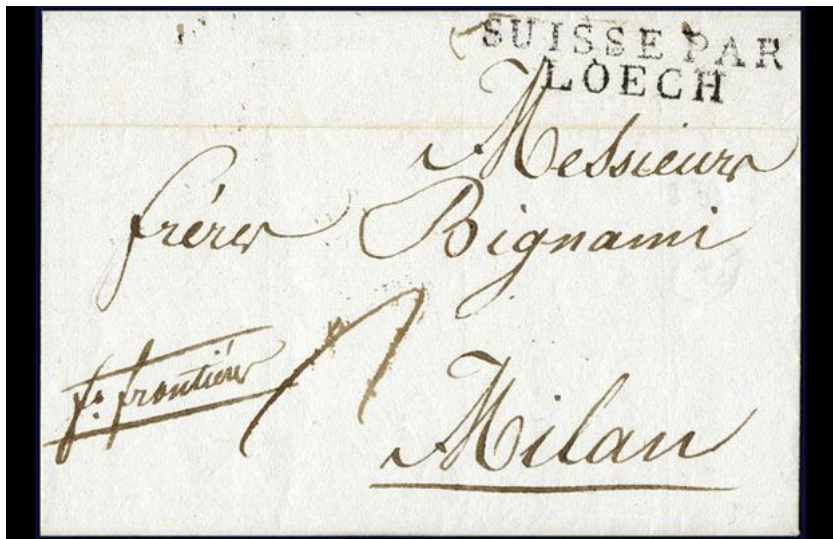 SUISSE PAR
LOECH
Messieurs
frères Bignami
fo. frontière
7
Milan